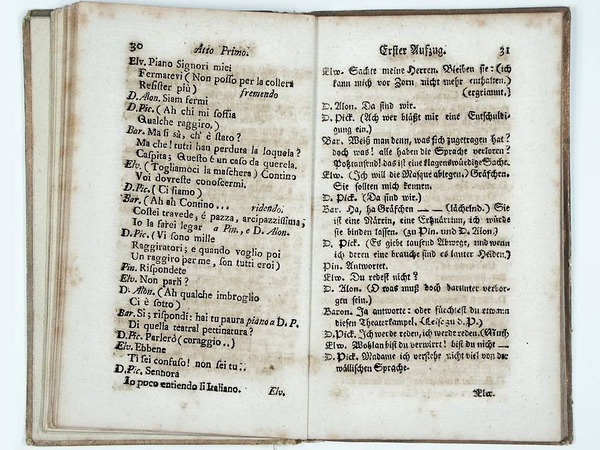 30 Atto Primo.
Elv. Piano Signori miei
Fermatevi (Non posso per la collera
Resister più) fremendo
D. Alon. Siam fermi
D. Pic. (Ah chi mi soffia
Qualche raggiro.)
Bar. Ma si sà, ch' è stato?
Ma che! tutti han perduta la loquela?
Caspita; Questo è un caso da querela.
Elv. (Togliamoci la maschera) Contino
Voi dovreste conoscermi.
D. Pic. (Ci siamo)
Bar. (Ah ah Contino... ridendo.
Costei travede, é pazza, arcipazzissima,
Io la farei legar a Pin, e D. Alon.
D. Pic. (Vi sono mille
Raggiratori; e quando voglio poi
Un raggiro per me, son tutti eroi)
Pin. Rispondete
Elv. Non parli?
D. Alon. (Ah qualche imbroglio
Ci è sotto)
Bar. Si; rispondi: hai tu paura piano a D. P.
Di quella teatral pettinatura?
D. Pic. Parlerò (coraggio..)
Elv. Ebbene
Ti sei confuso! non sei tu..
D. Pic. Sennorà
Io poco entiendo li Italiano.
Elv.
Erster Aufzug. 31
Elw. Sachte meine Herren. Bleiben sie: (ich
kann mich vor Zorn nicht mehr enthalten.)
(ergrimmt.)
D. Alon. Da sind wir.
D. Pick. (Ach wer bläßt mir eine Entschuldi
gung ein.)
Bar. Weiß man denn, was sich zugetragen hat?
doch was! alle haben die Sprache verloren?
Poßtausend! das ist eine klagenswürdige Sache.
Elw. (Ich will die Masque ablegen.) Gräfchen,
Sie sollten mich kennen.
D. Pick. (Da sind wir.)
Bar. Ha, ha Gräfchen — — (lächelnd.) Sie
ist eine Närrin, eine Erznärrin, ich würde
sie binden lassen. (zu Pin. und D. Alon.)
D. Pick. (Es giebt tausend Abwege, und wenn
ich deren eine brauche sind es lauter Heiden.)
Pin. Antwortet.
Elw. Du redest nicht?
D. Alon. (O was muß doch darunter verbor-
gen seyn.)
Baron. Ja antworte: oder fürchtest du etwann
diesen Theaterkampel. (Leise zu D. P.)
D. Pick. Ich werde reden, ich werde reden. (Muth)
Elw. Wohlan bist du verwirrt! bist du nicht —
D. Pick. Madame ich verstehe nicht viel von der
wällischen Sprache.
Elw.